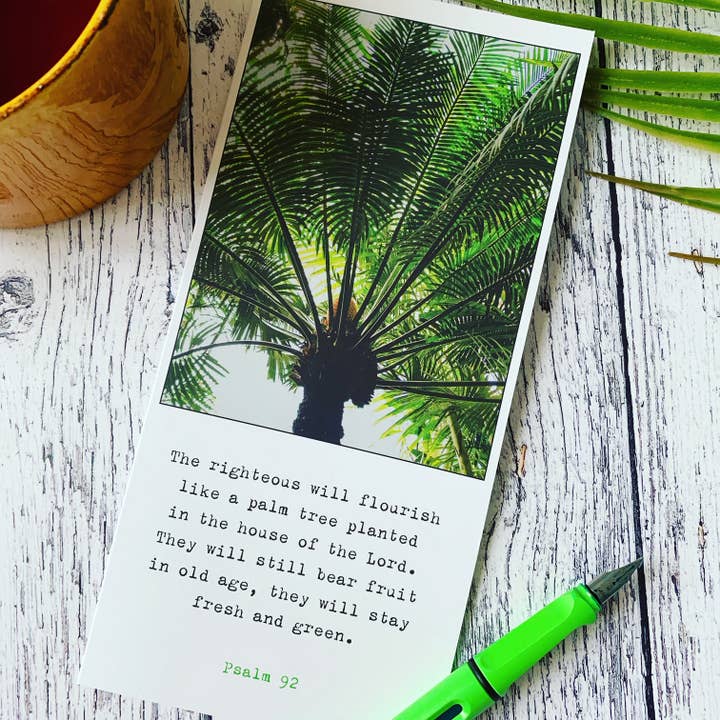 The righteous will flourish
like a palm tree planted
in the house of the Lord.
They will still bear fruit
in old age, they will stay
fresh and green.
Psalm 92